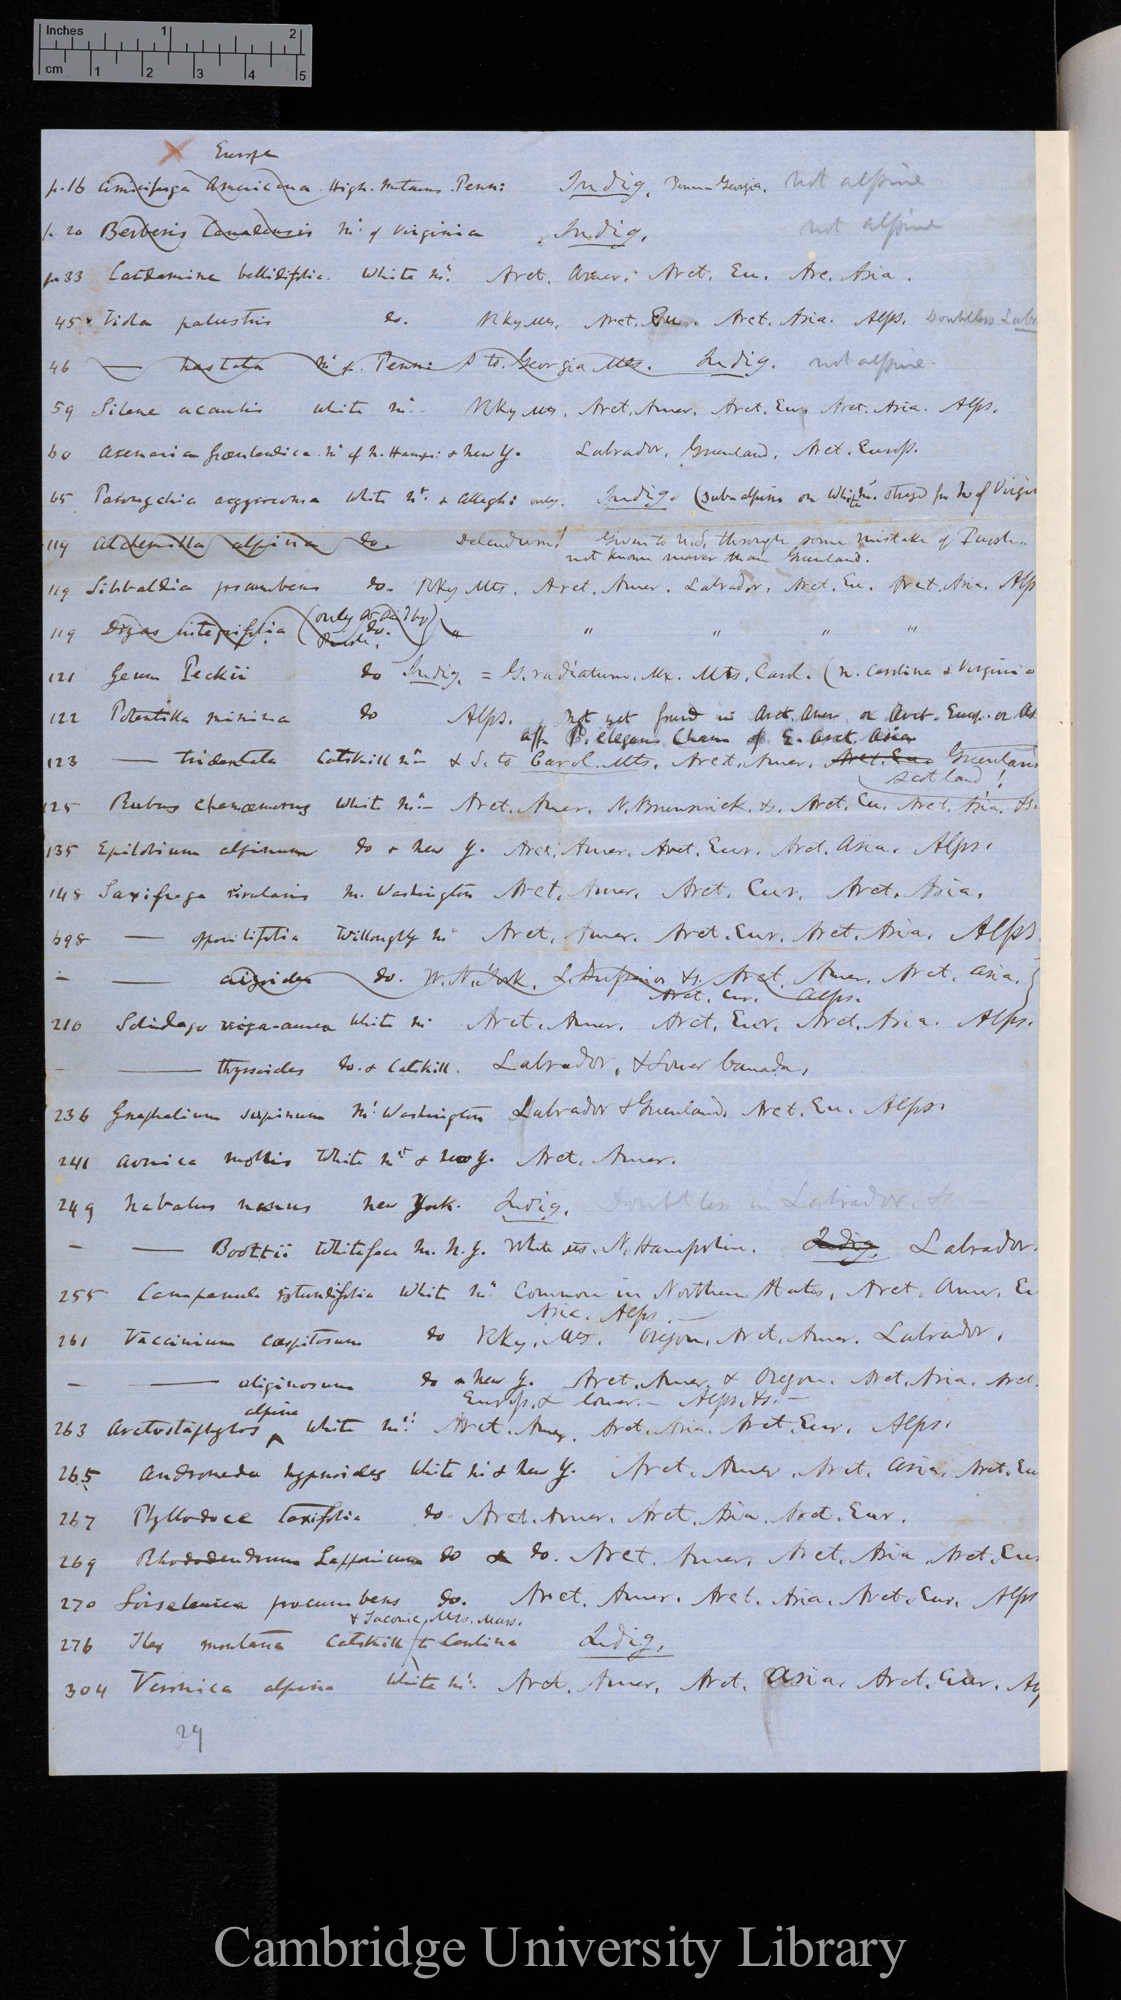 Inches 1 2
cm 1 2 3 4 5
Europe
p.16 Cimicifuga Americana High. Mtains Penn: Indig. Penn - Georgia. not alpine
p. 20 Berberis Canadensis Mts of Virginia Indig. not alpine
p.33 Cardamine bellidifolia. White Mts. Arct. Amer. Arct. Eu. Arc. Asia.
45 Viola palustris do. Rky Mts. Arct. Eur. Arct. Asia. Alps. Doubtless Labr
46 — hastata Mts of Penn: S to Georgia Mts. Indig. not alpine.
59 Silene acaulis White Mts. Rky Mts. Arct. Amer. Arct. Eur. Arct. Asia. Alps.
60 Arenaria Grœnlandica. Mts of N. Hamps: & New Y. Labrador, Greenland, Arct. Europ.
65 Paronychia argyrocoma White Mts. & Allegh: only. Indig. (subalpine on White Mts. through Mts of Virgin
119 Alchemilla alpina do. Delendum! Given to U.S. through some mistake of Pursh.
not known nearer than Greenland.
119 Sibbaldia procumbens do. Rky Mts. Arct. Amer. Labrador, Arct. Eu. Arct. Asia. Alp
119 Dryas integrifolia (only so said by Pursh. do. " " " " "
121 Geum Peckii do Indig. = G. radiatum. Mx. Mts. Carol. (N. Carolina & Virginia
122 Potentilla minima do Alps. Not yet found in Arct. Amer or Arct. Europ. or As
aff. P. elegans Cham of E. Arct. Asia
123 — tridentata Catskill Mts & S. to Carol. Mts. Arct. Amer. Arct. Eu. Greenland
Scotland!
125 Rubus Chamæmorus White Mts — Arct. Amer. N. Brunswick &c. Arct. Eu. Arct. Asia. &c.
135 Epilobium alpinum do & New Y. Arct. Amer. Arct. Eur. Arct. Asia. Alps.
148 Saxifraga rivularis M. Washington Arct. Amer. Arct. Eur. Arct. Asia.
698 — oppositifolia Willoughby Mts Arct. Amer. Arct. Eur. Arct. Asia. Alps
— — aizoides do. W. N. York. L. Superior &c. Arct. Amer. Arct. Asia.
Arct. Eur. Alps.
210 Solidago virga-aurea White Mts Arct. Amer. Arct. Eur. Arct. Asia. Alps.
— — thyrsoidea do. & Catskill. Labrador, & Lower Canada.
236 Gnaphalium supinum Mt Washington Labrador & Greenland. Arct. Eu. Alps.
241 Arnica mollis White Mts & New Y. Arct. Amer.
249 Nabalus nanus New York. Indig. Doubtless in Labrador. &
— — Boottii Whiteface M. N. Y. White Mts. N. Hampshire. Indig. Labrador.
255 Campanula rotundifolia White Mts Common in Northern States, Arct. Amer. Eu
Asia. Alps. —
261 Vaccinium cæspitosum do Rky. Mts. Oregon. Arct. Amer. Labrador.
— — uliginosum do & New Y. Arct. Amer. & Oregon. Arct. Asia. Arct.
Europ. & lower. — Alps. &c. —
alpina
263 Arctostaphylos ^ White Mts. Arct. Amer. Arct. Asia. Arct. Eur. Alps.
265 Andromeda hypnoides White Mts & New Y. Arct. Amer. Arct. Asia. Arct. Eu
267 Phyllodoce taxifolia do Arct. Amer. Arct. Asia. Arct. Eur.
269 Rhododendrum Lapponicum do & do. Arct. Amer. Arct. Asia Arct. Eur
270 Loiseleuria procumbens do. Arct. Amer. Arct. Asia. Arct. Eur. Alps
& Taconic Mts. Mass.
276 Ilex montana Catskill to Carolina Indig.
304 Veronica alpina White Mts. Arct. Amer. Arct. Asia. Arct. Eur. Alp
29
Cambridge University Library